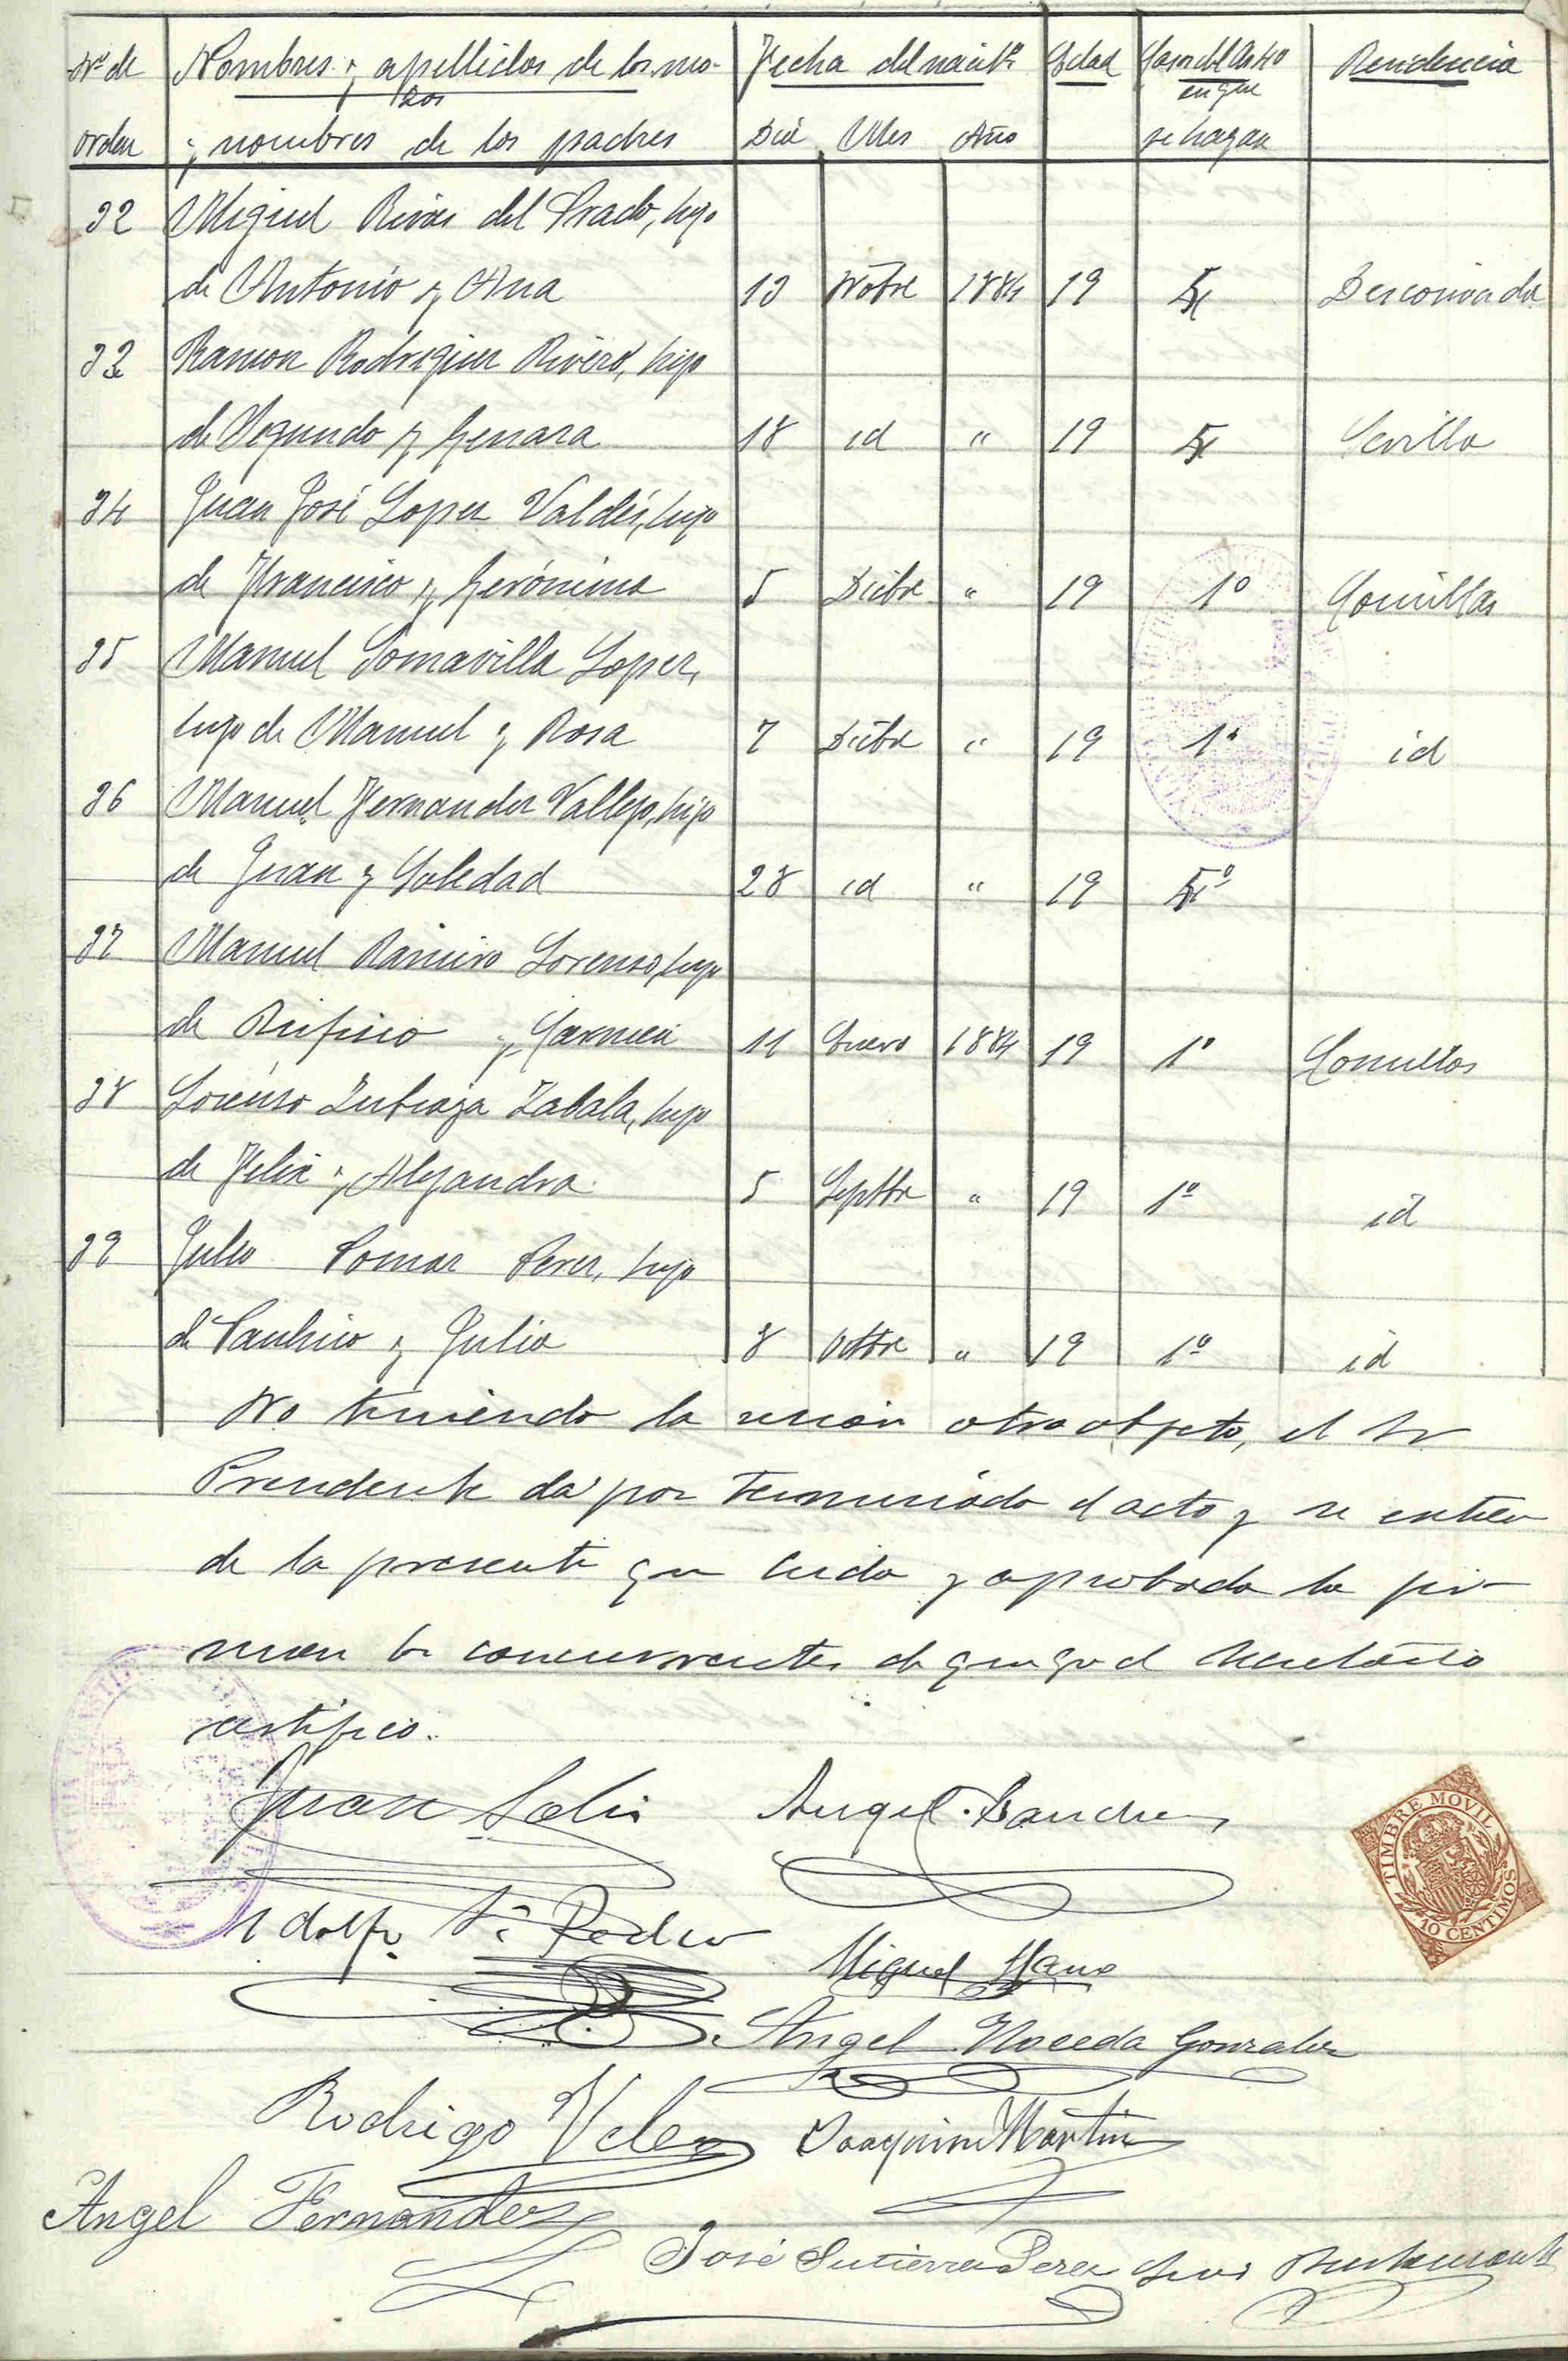 Nº de Nombres y apellidos de los mo- Fecha del nacitº Edad Casos del Art 40 Residencia
zos en que
orden y nombres de los padres Dia Mes Año se hayan
32 Miguel Rivas del Prado, hijo
de Antonio y Ana 13 Nobre 1884 19 Desconocida
33 Ramon Rodriguez Rivero, hijo
de Segundo y Genara 18 id " 19 Sevilla
34 Juan José Lopez Valdés, hijo
de Francisco y Gerónima 5 Dicbre " 19 1º Comillas
35 Manuel Somavilla Lopez,
hijo de Manuel y Rosa 7 Dicbre " 19 1º id
36 Manuel Fernandez Vallejo, hijo
de Juan y Soledad 28 id " 19
37 Manuel Ramiro Lorenzo, hijo
de Rufino y Carmen 11 Enero 1884 19 1º Comillas
38 Lorenzo Zubiaga Zabala, hijo
de Felix y Alejandra 5 Septbre " 19 1º id
39 Julio Pomar Perez, hijo
de Paulino y Julia 8 Octbre " 19 1º id
No teniendo la sesión otro objeto, el Sr
Presidente da por terminado el acto y se extien
de la presente que leida y aprobada la fir-
man los concurrentes de que yo el Secretario
certifico.
Juan Solis Angel Sanchez
Adolfo Sn Pedro
Miguel Llano
Angel Noceda Gonzalez
Rodrigo Velez Joaquin Martin
Angel Fernandez
José Gutierrez Perez Luis Bustamante
TIMBRE MOVIL
10 CENTIMOS